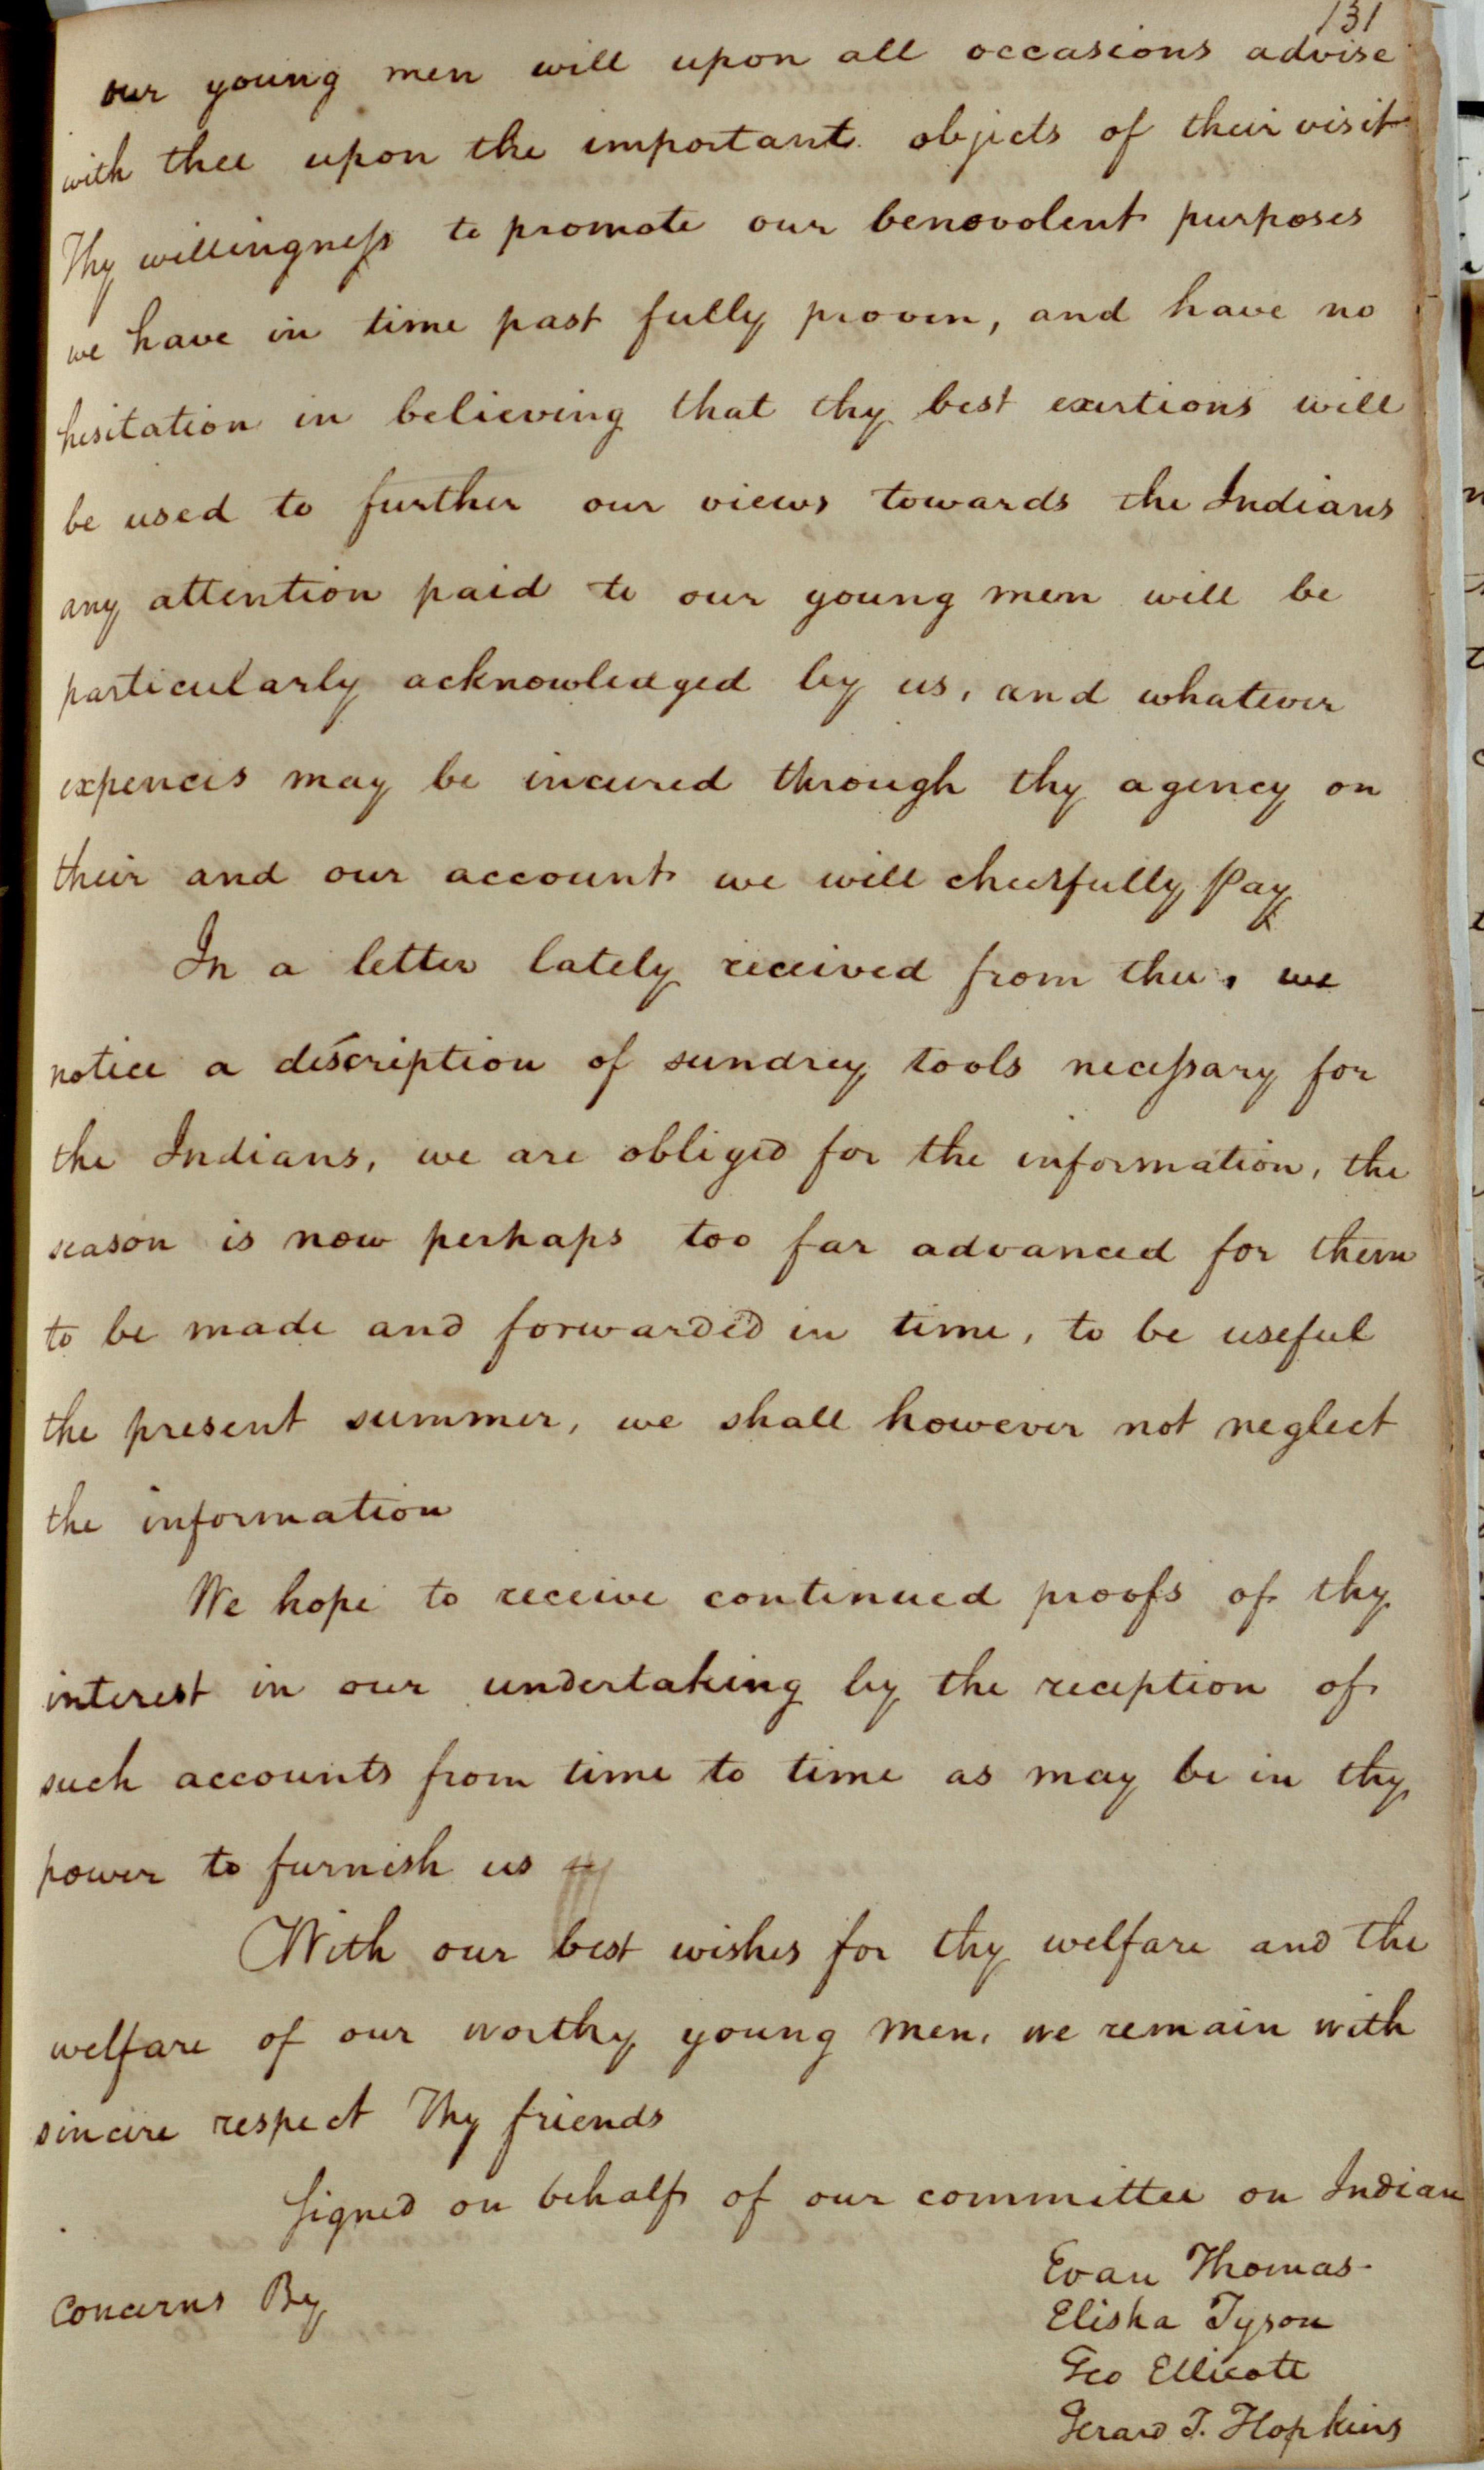 131
our young men will upon all occasions advise
with thee upon the important objects of their visit
Thy willingness to promote our benovolent purposes
we have in time past fully proven, and have no
hesitation in believing that thy best exertions will
be used to further our views towards the Indians
any attention paid to our young men will be
particularly acknowledged by us, and whatever
expences may be incured through thy agency on
their and our account we will cheerfully Pay
In a letter lately received from thee, we
notice a description of sundry tools necessary for
the Indians, we are obliged for the information, the
season is now perhaps too far advanced for them
to be made and forwarded in time, to be useful
the present summer, we shall however not neglect
the information
We hope to receive continued proofs of thy
interest in our undertaking by the reception of
such accounts from time to time as may be in thy
power to furnish us
With our best wishes for thy welfare and the
welfare of our worthy young men, we remain with
sincere respect Thy friends
Signed on behalf of our committee on Indian
Concerns By
Evan Thomas
Elisha Tyson
Geo Ellicott
Gerard T. Hopkins